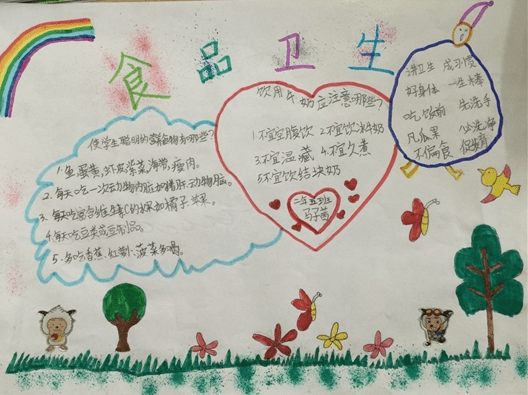 食品卫生
使学生聪明的食物有那些?
1.鱼、蛋黄、虾皮、紫菜、海带、瘦肉。
2.每天吃一次动物内脏如猪肝、动物脑。
3.每天吃富含维生素C的水果如橘子苹果。
4.每天吃豆类或豆制品。
5.多吃香蕉、红
饮用牛奶应注意哪些?
1.不宜空腹饮 2.不宜饮冰奶
3.不宜温藏 4.不宜久煮
5.不宜饮结块奶
二年五班
讲卫生 成习惯
好身体 一生棒
吃饭前 先洗手
凡瓜果 必洗净
不偏食 保发育